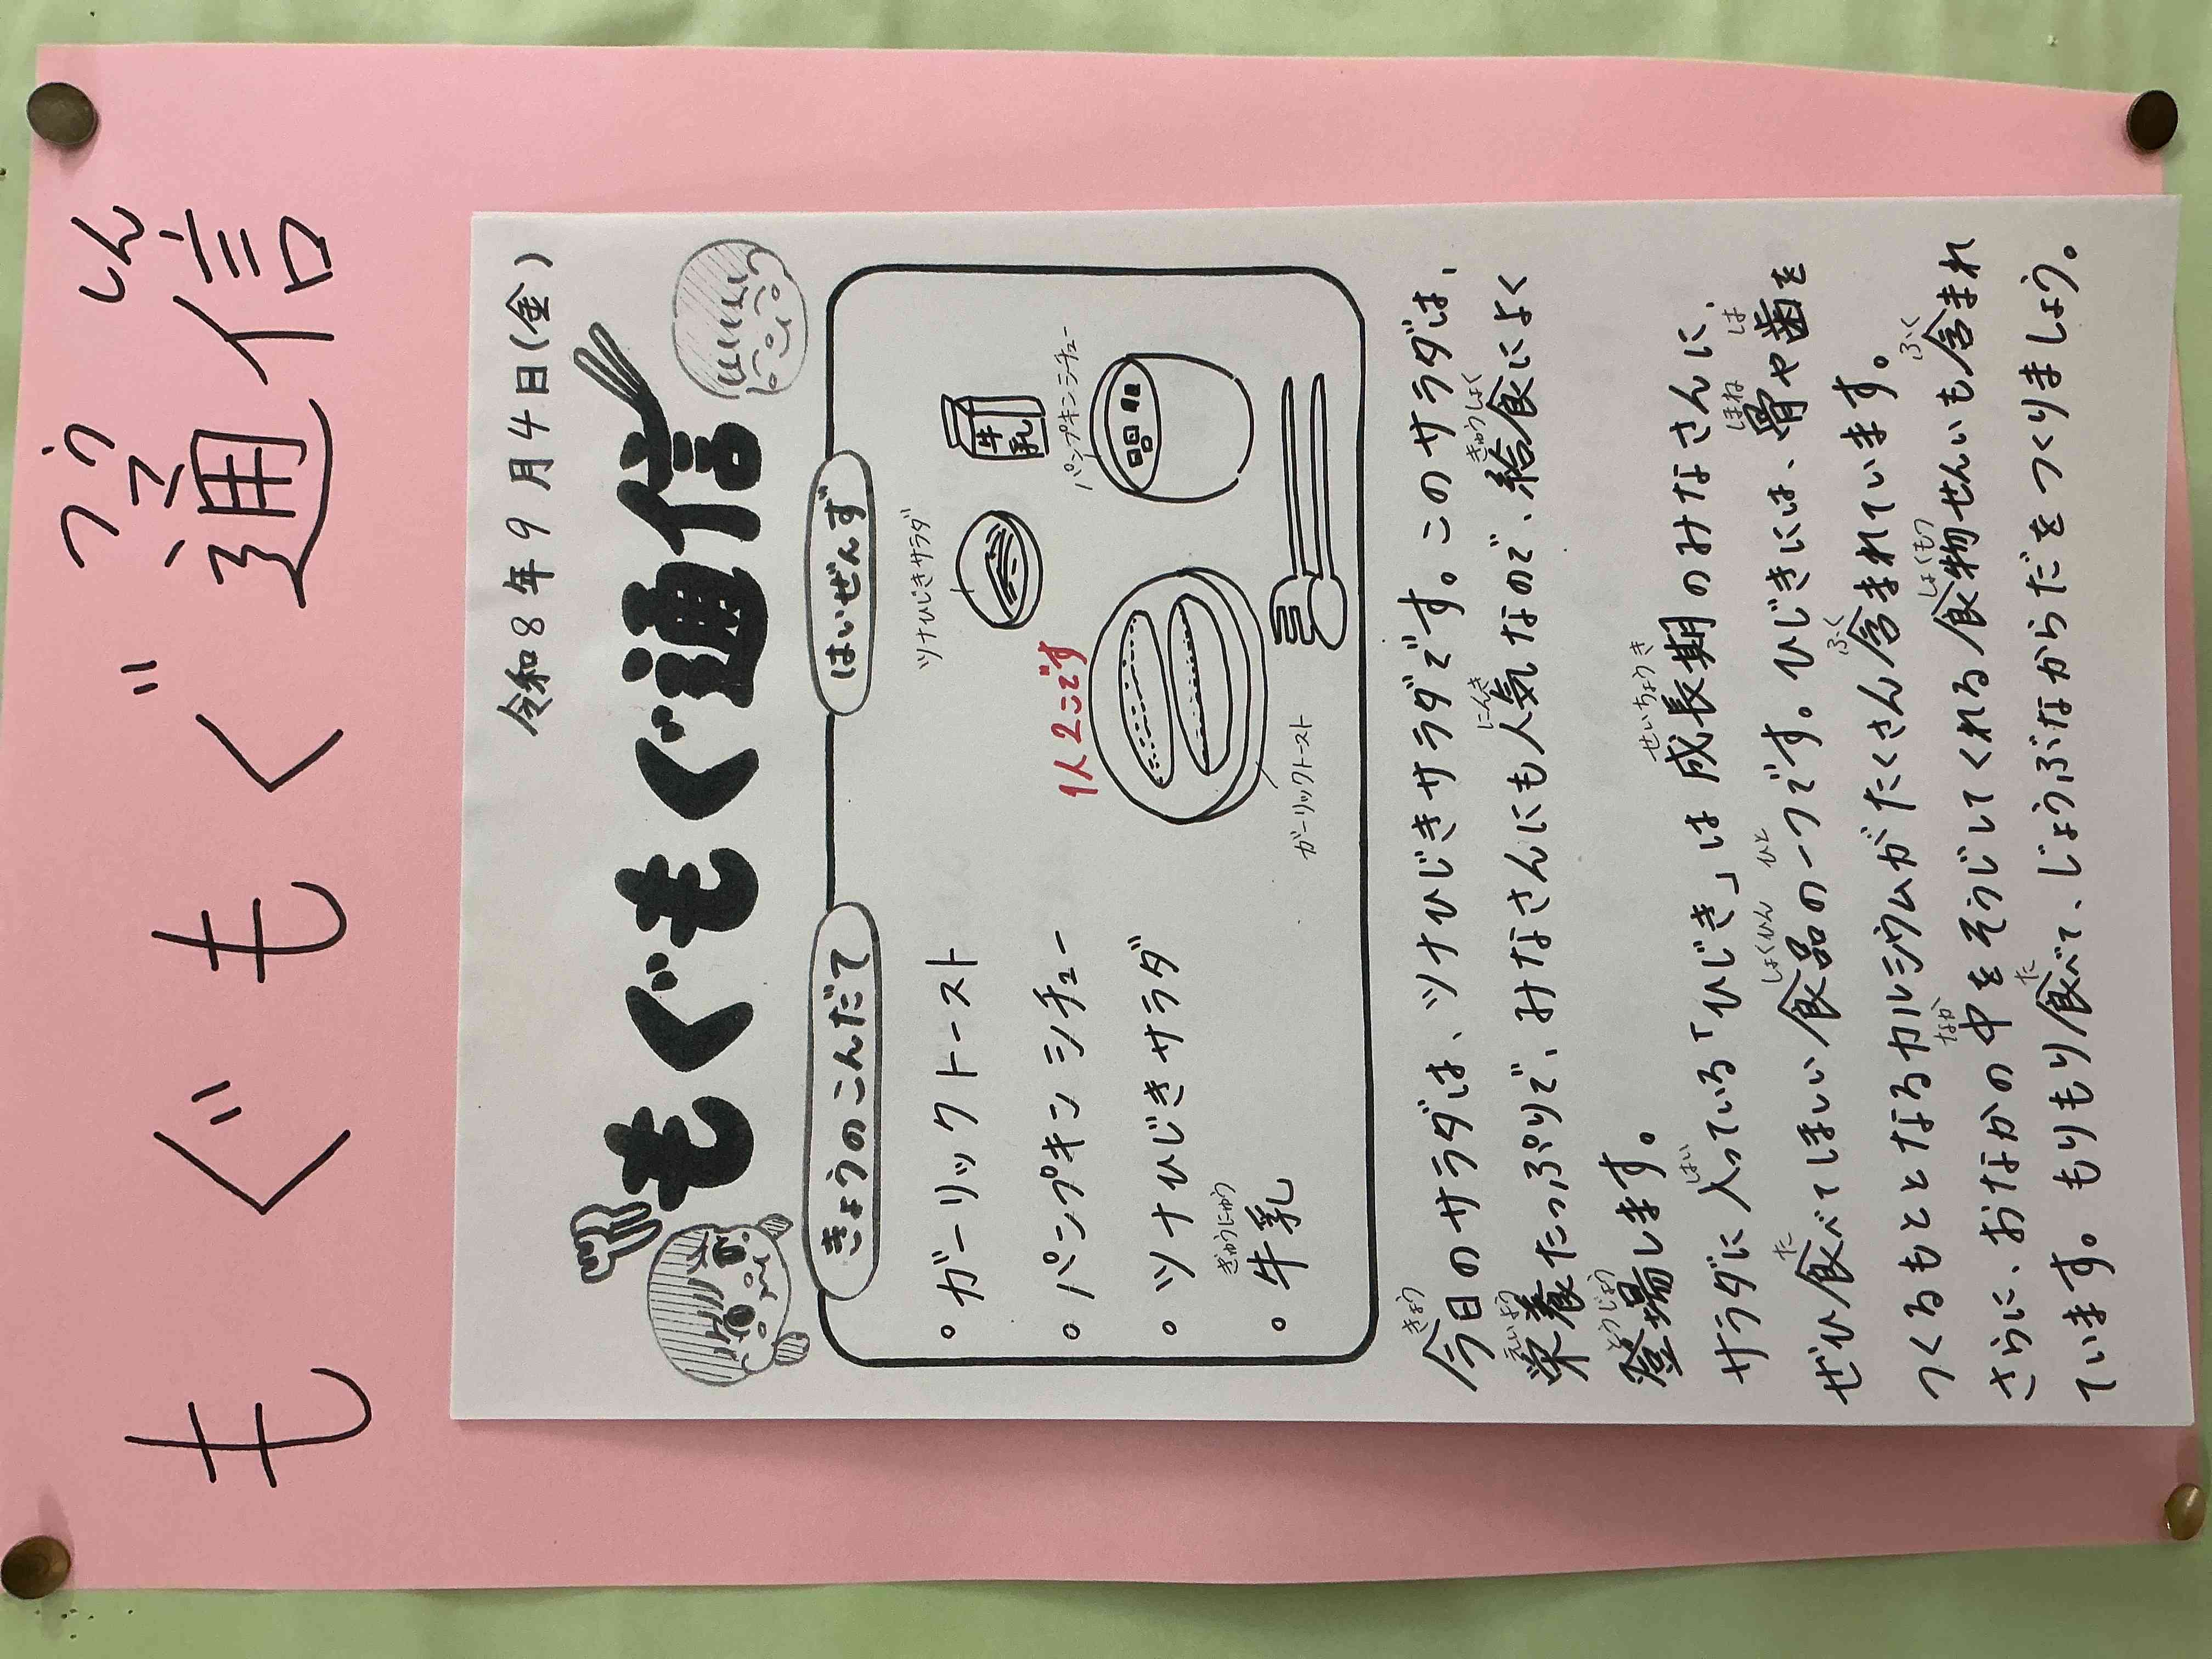 もぐもぐ通信
つうしん
令和8年9月4日(金)
もぐもぐ通信
きょうのこんだて
はいぜんず
・ガーリックトースト
・パンプキンシチュー
・ツナひじきサラダ
・牛乳
ぎゅうにゅう
ツナひじきサラダ
牛乳
パンプキンシチュー
1人2こです
ガーリックトースト
今日のサラダは、ツナひじきサラダです。このサラダは、
栄養たっぷりで、みなさんにも人気なので、給食によく
登場します。
サラダに入っている「ひじき」は成長期のみなさんに、
ぜひ食べてほしい食品の一つです。ひじきには、骨や歯を
つくるもととなるカルシウムがたくさん含まれています。
さらに、おなかの中をそうじしてくれる食物せんいも含まれ
ています。もりもり食べて、じょうぶなからだをつくりましょう。